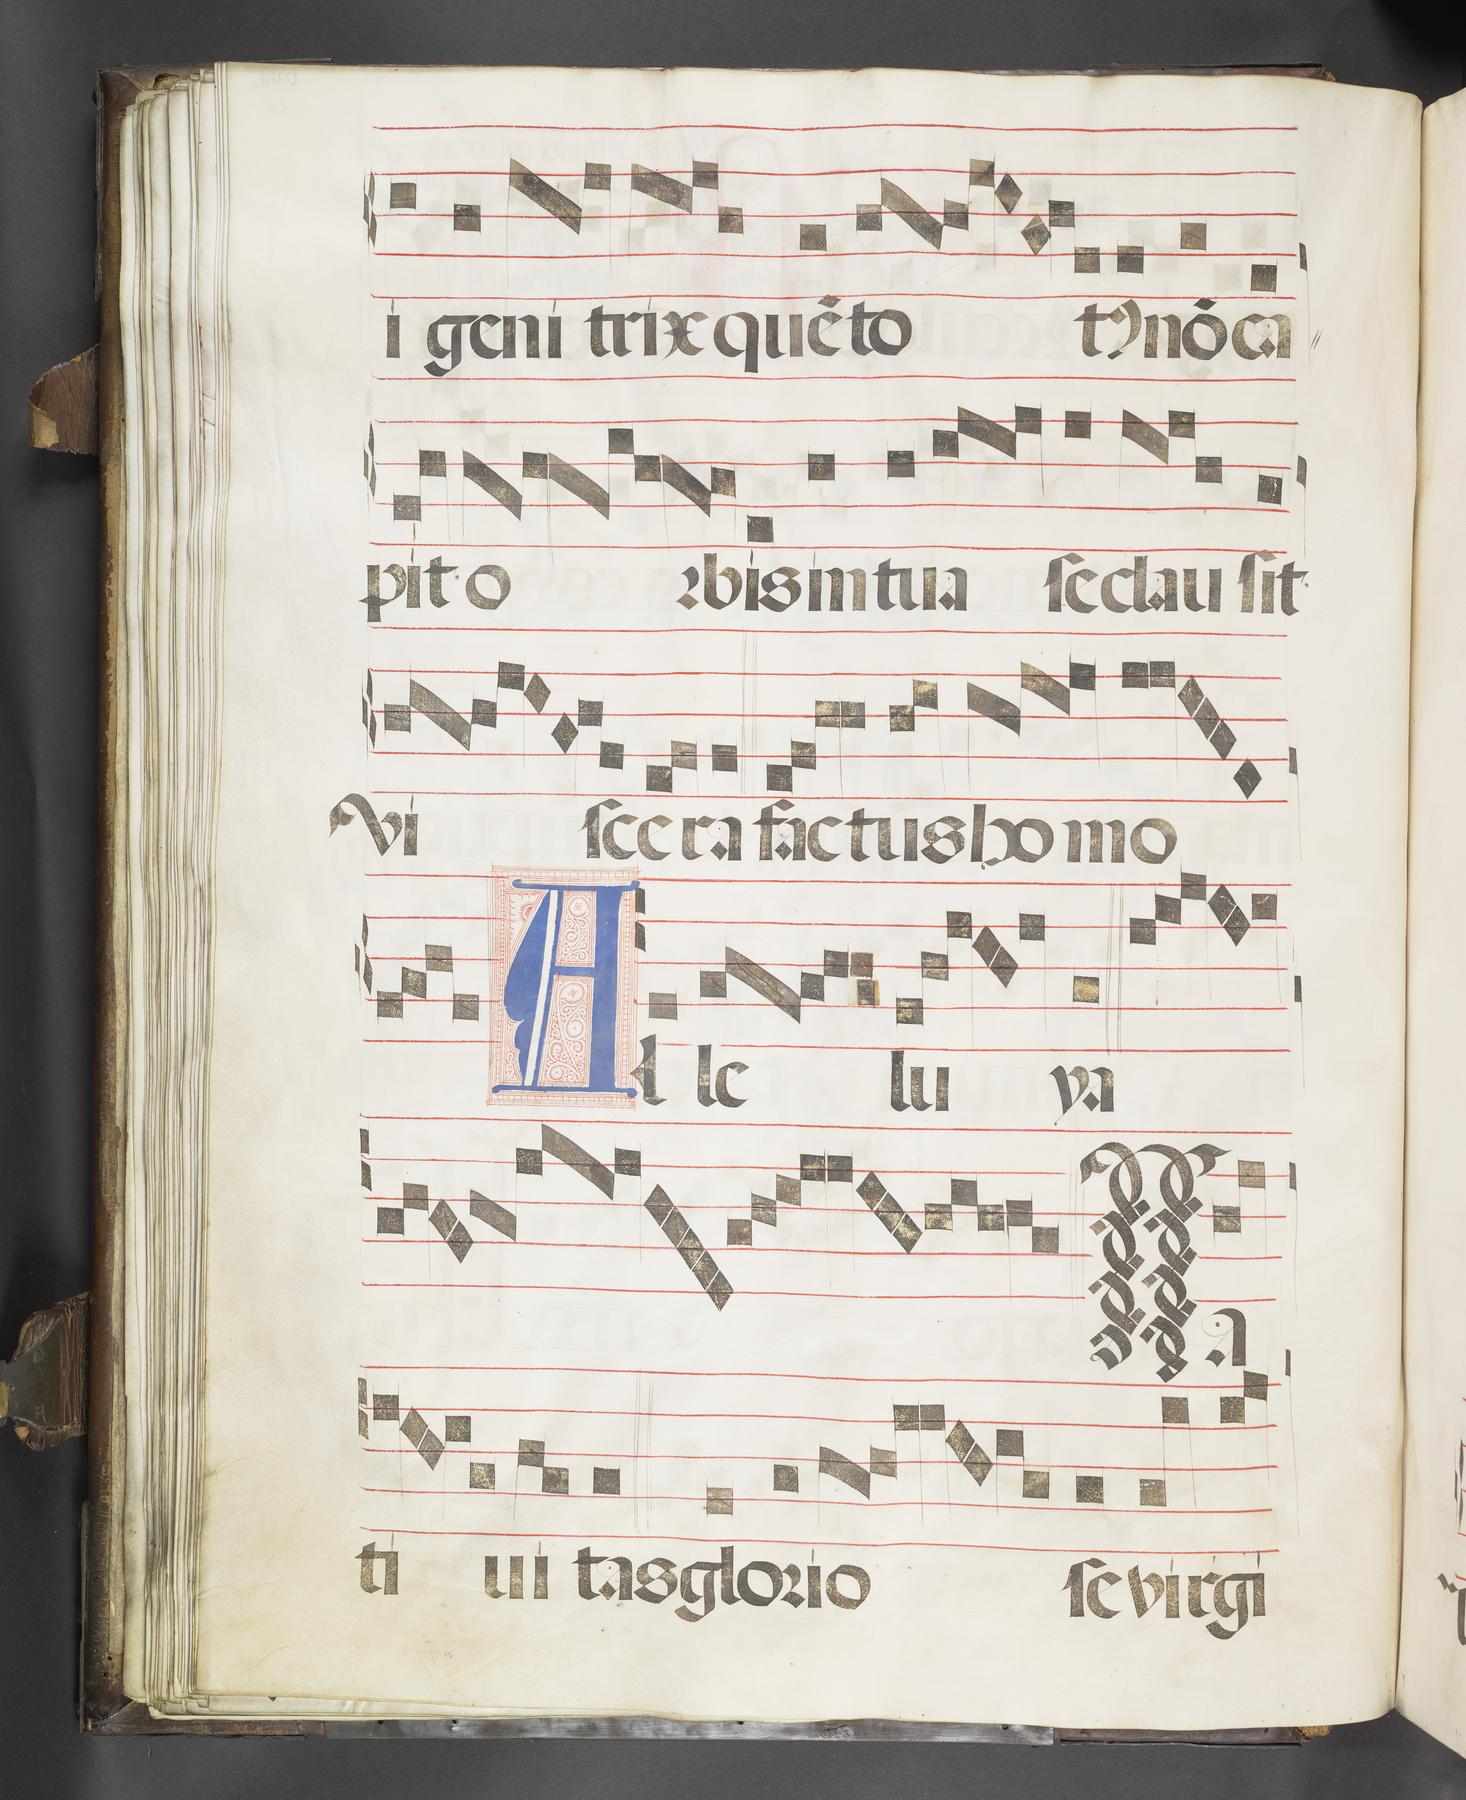 i geni trix quē to tꝰ nō ca
pit o rbis in tua se clau sit
vi sce ra factus ho mo
Al le lu ya
Na
ti ui tas glorio se virgi